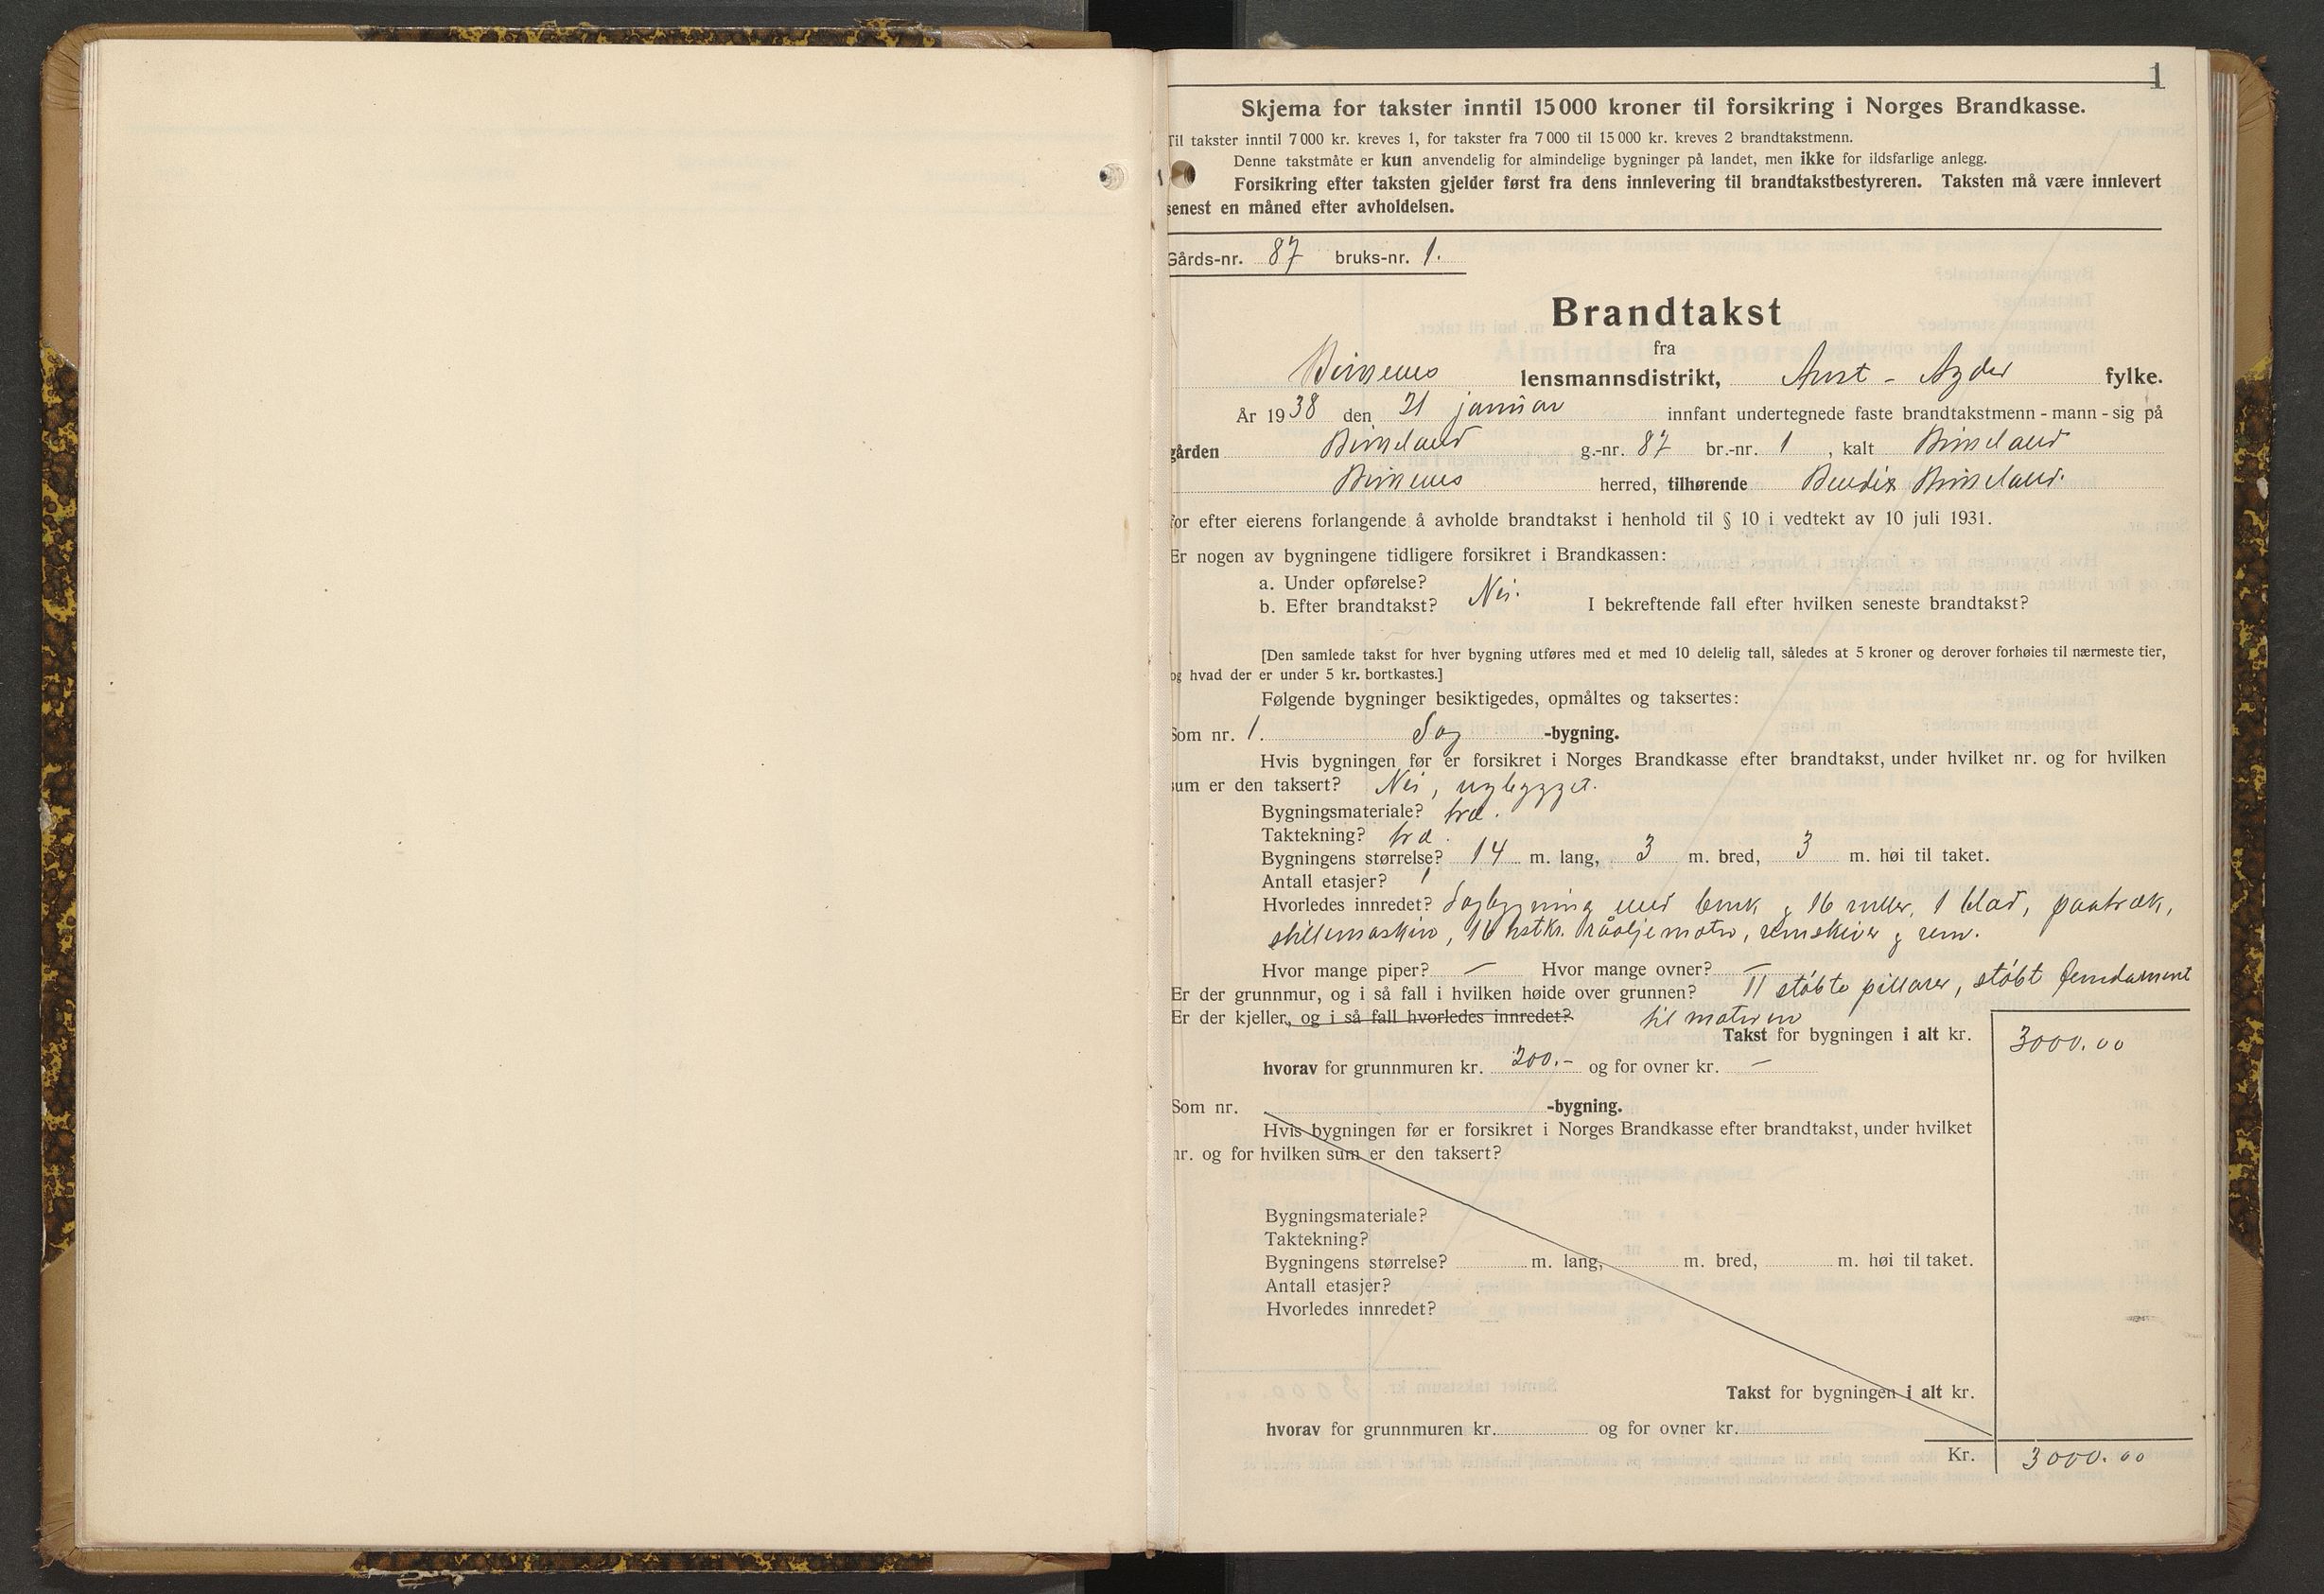 1
Skjema for takster inntil 15 000 kroner til forsikring i Norges Brandkasse.
Til takster inntil 7 000 kr. kreves 1, for takster fra 7 000 til 15 000 kr. kreves 2 brandtakstmenn.
Denne takstmåte er kun anvendelig for almindelige bygninger på landet, men ikke for ildsfarlige anlegg.
Forsikring efter taksten gjelder først fra dens innlevering til brandtakstbestyreren. Taksten må være innlevert
senest en måned efter avholdelsen.
Gårds-nr. 87 bruks-nr. 1.
Brandtakst
fra
Birkenes lensmannsdistrikt, Aust-Agder fylke.
År 1938 den 21 januar innfant undertegnede faste brandtakstmenn - mann - sig på
gården Birkeland g.-nr. 87 br.-nr. 1, kalt Birkeland
Birkenes herred, tilhørende Bendix Birkeland.
for efter eierens forlangende å avholde brandtakst i henhold til § 10 i vedtekt av 10 juli 1931.
Er nogen av bygningene tidligere forsikret i Brandkassen:
a. Under opførelse?
b. Efter brandtakst? Nei. I bekreftende fall efter hvilken seneste brandtakst?
[Den samlede takst for hver bygning utføres med et med 10 delelig tall, således at 5 kroner og derover forhøies til nærmeste tier,
og hvad der er under 5 kr. bortkastes.]
Følgende bygninger besiktigedes, opmåltes og taksertes:
Som nr. 1. Sag -bygning.
Hvis bygningen før er forsikret i Norges Brandkasse efter brandtakst, under hvilket nr. og for hvilken
sum er den taksert? Nei, nybygget.
Bygningsmateriale? træ.
Taktekning? træ.
Bygningens størrelse? 14 m. lang, 3 m. bred, 3 m. høi til taket.
Antall etasjer? 1
Hvorledes innredet? Sagbygning med benk & 16 ruller, 1 blad, paatræk,
stillemaskin, 16 hstkr. råoljemotor, remskiver & rem.
Hvor mange piper? — Hvor mange ovner? —
Er der grunnmur, og i så fall i hvilken høide over grunnen? 11 støbte pillarer, støbt fundament
Er der kjeller, og i så fall hvorledes innredet? til motoren
Takst for bygningen i alt kr. 3000.00
hvorav for grunnmuren kr. 200.- og for ovner kr. —
Som nr. -bygning.
Hvis bygningen før er forsikret i Norges Brandkasse efter brandtakst, under hvilket
nr. og for hvilken sum er den taksert?
Bygningsmateriale?
Taktekning?
Bygningens størrelse? m. lang, m. bred, m. høi til taket.
Antall etasjer?
Hvorledes innredet?
Takst for bygningen i alt kr.
hvorav for grunnmuren kr. og for ovner kr.
Kr. 3000.00